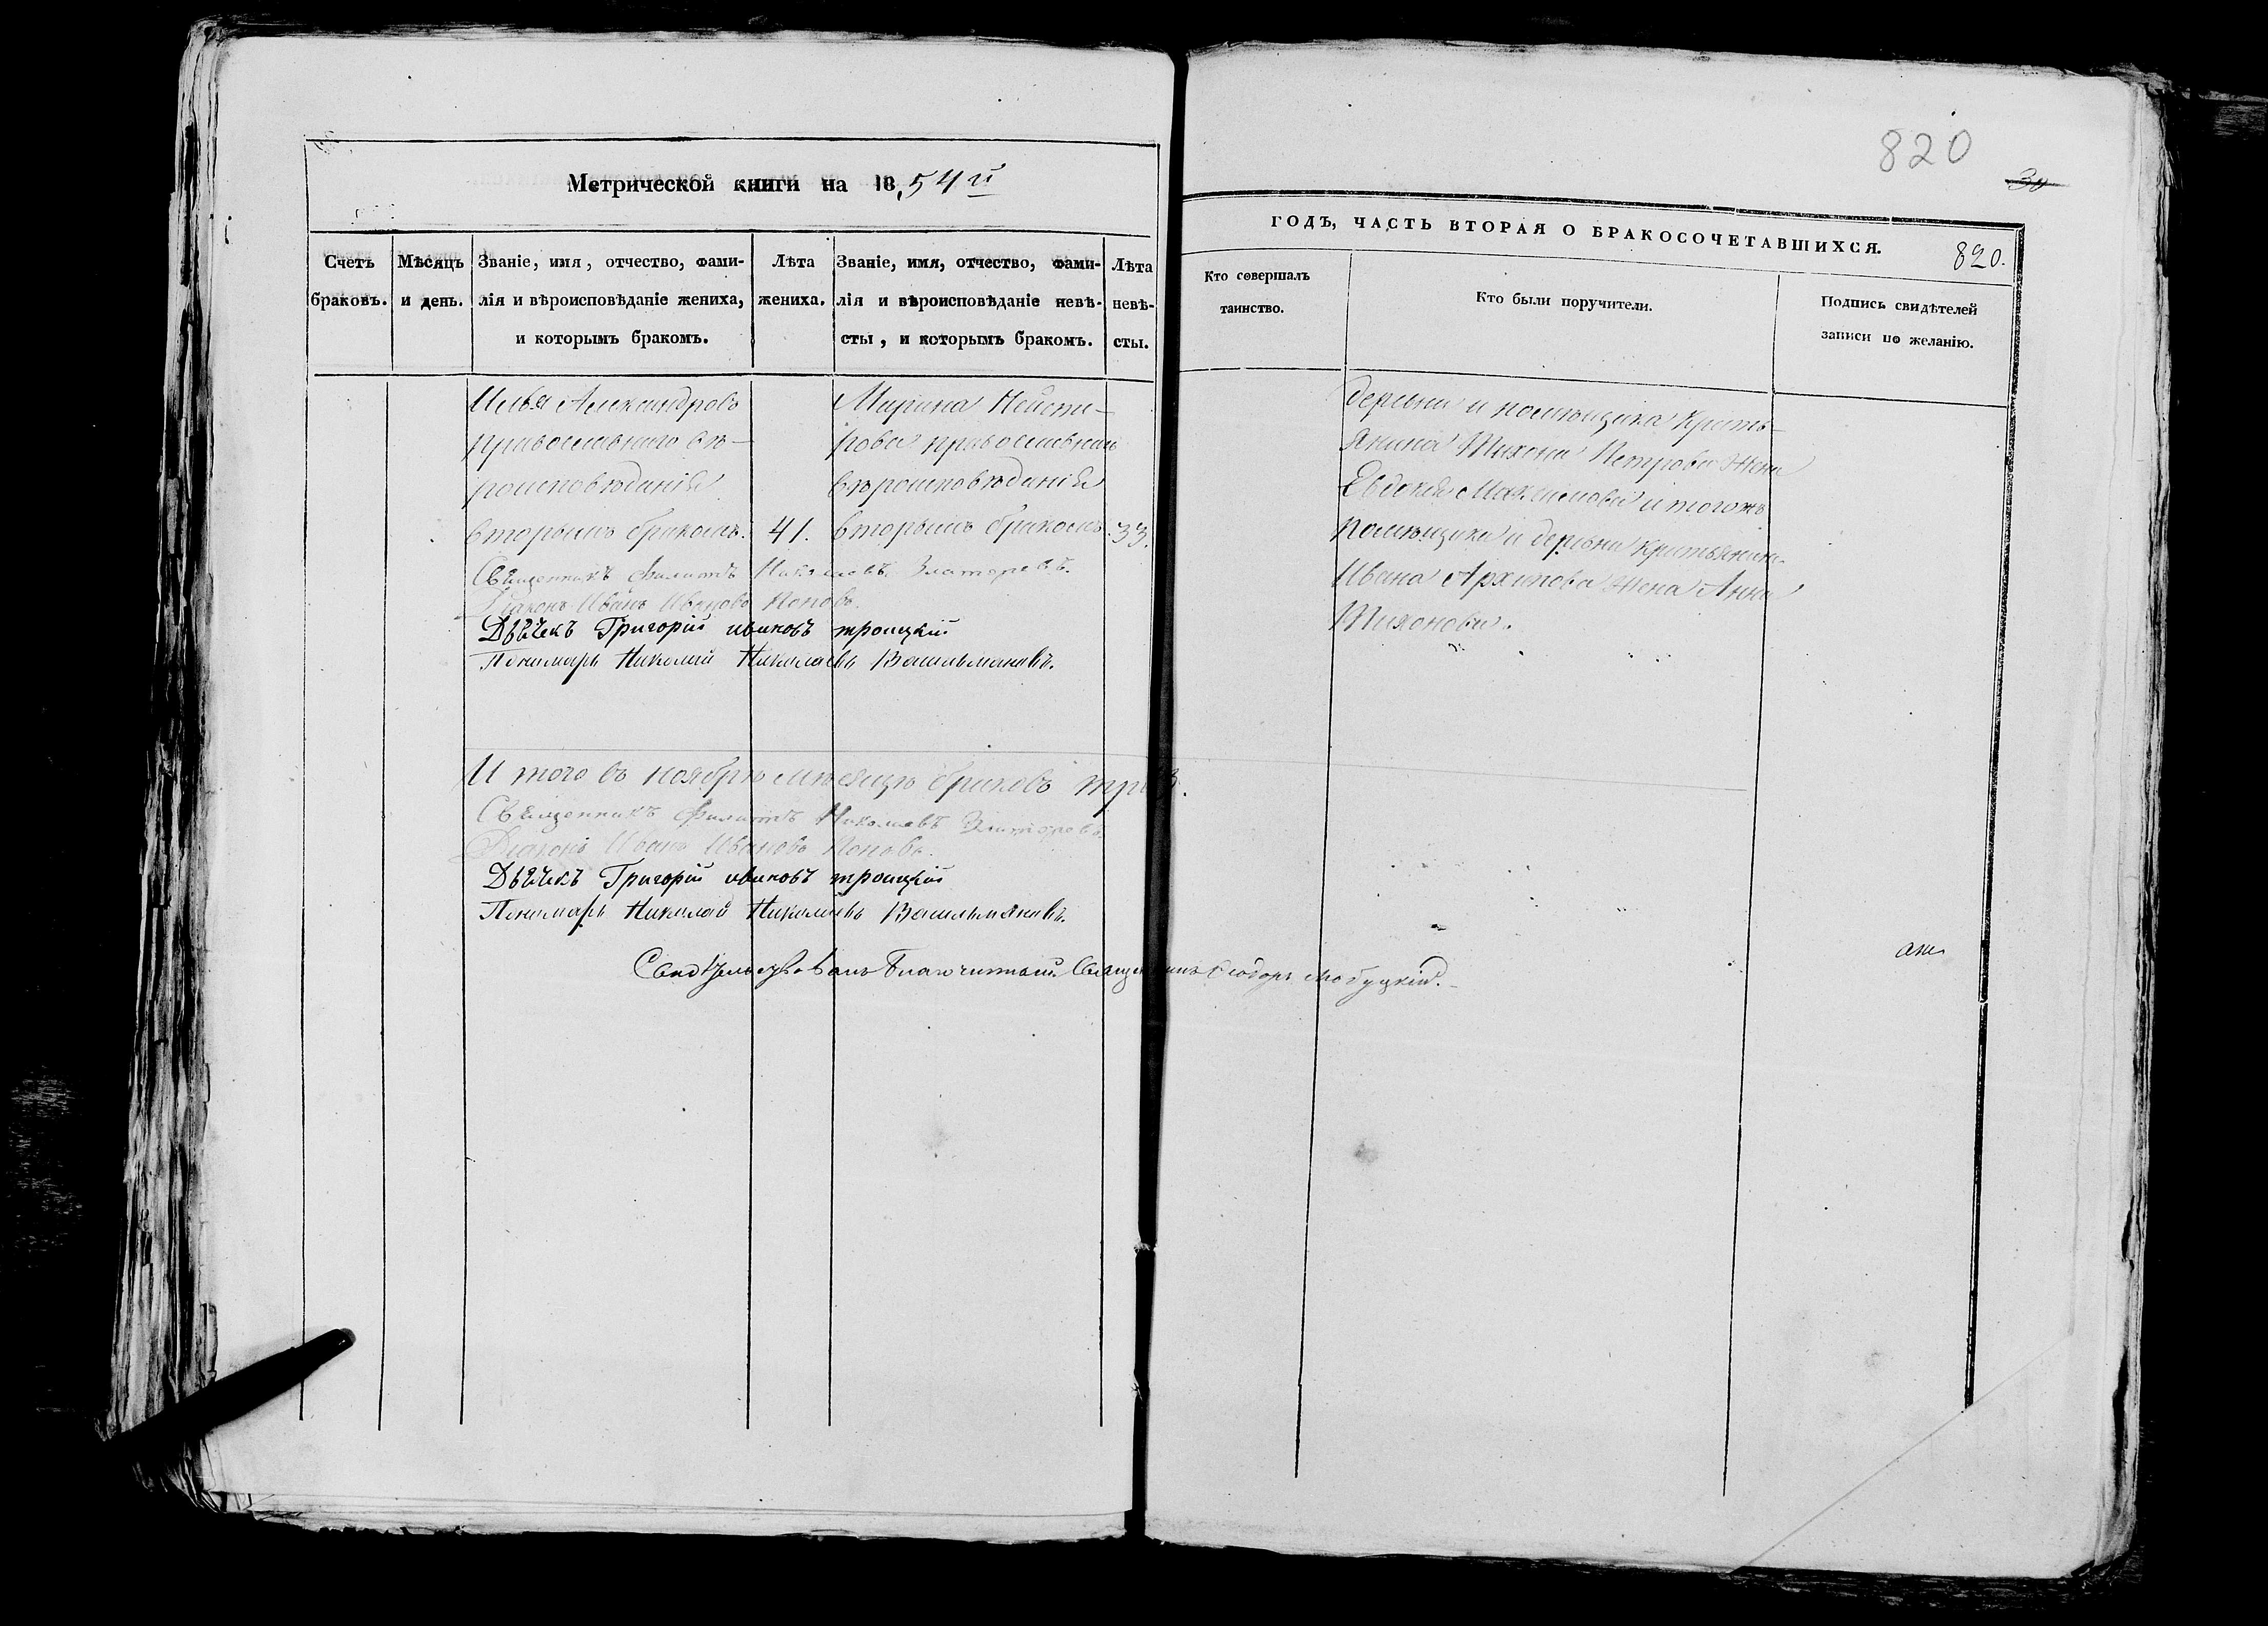 Метрической книги на 1854й
Счетъ браковъ.
Мѣсяцъ и день.
Званіе, имя, отчество, фами-
лія и вѣроисповѣданіе жениха,
и которымъ бракомъ.
Лѣта
жениха.
Званіе, имя, отчество, фами-
лія и вѣроисповѣданіе невѣ-
сты, и которымъ бракомъ.
Лѣта
невѣ-
сты.
Илья Александровъ
православнаго вѣ-
роисповѣданія
вторымъ бракомъ.
41.
Марина
рова православнаго
вѣроисповѣданія
вторымъ бракомъ.
33.
Священникъ Филиппъ Николаевъ
Діаконъ Иванъ Ивановъ Поповъ.
Дьячекъ Григорій ивановъ троицкій
Пономарь Николай Николаевъ
И того въ ноябрѣ мѣсяцѣ браковъ три 3.
Священникъ Филиппъ Николаевъ
Діаконъ Иванъ Ивановъ Поповъ.
Дьячекъ Григорій ивановъ троицкій
Пономарь Николай Николаевъ
Свидѣтельствовалъ Благочинный Священникъ Ѳеодоръ
820
30
ГОДЪ, ЧАСТЬ ВТОРАЯ О БРАКОСОЧЕТАВШИХСЯ.
820.
Кто совершалъ
таинство.
Кто были поручители.
Подпись свидѣтелей
записи по желанію.
деревни и помѣщика кресть-
янина Тихона Петрова жена
Евдокія Максимова и тогожъ
помѣщика и деревни крестьянина
Ивана Архипова жена Анна
Тихонова.